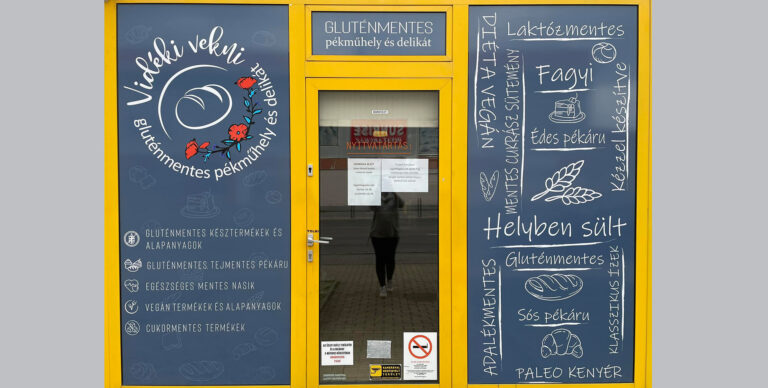 Vidéki vekni
gluténmentes pékműhely és delikát
GLUTÉNMENTES KÉSZTERMÉKEK ÉS
ALAPANYAGOK
GLUTÉNMENTES TEJMENTES PÉKÁRU
EGÉSZSÉGES MENTES NASIK
VEGÁN TERMÉKEK ÉS ALAPANYAGOK
CUKORMENTES TERMÉKEK
GLUTÉNMENTES
pékműhely és delikát
NYITVATARTÁS:
TOLNI
KAMERÁVAL
MEGFIGYELT
TERÜLET
DIÉTA VEGÁN
MENTES CUKRÁSZ SÜTEMÉNY
Laktózmentes
Fagyi
Édes pékáru
Kézzel készítve
Helyben sült
ADALÉKMENTES
Gluténmentes
Sós pékáru
KLASSZIKUS ÍZEK
PALEO KENYÉR